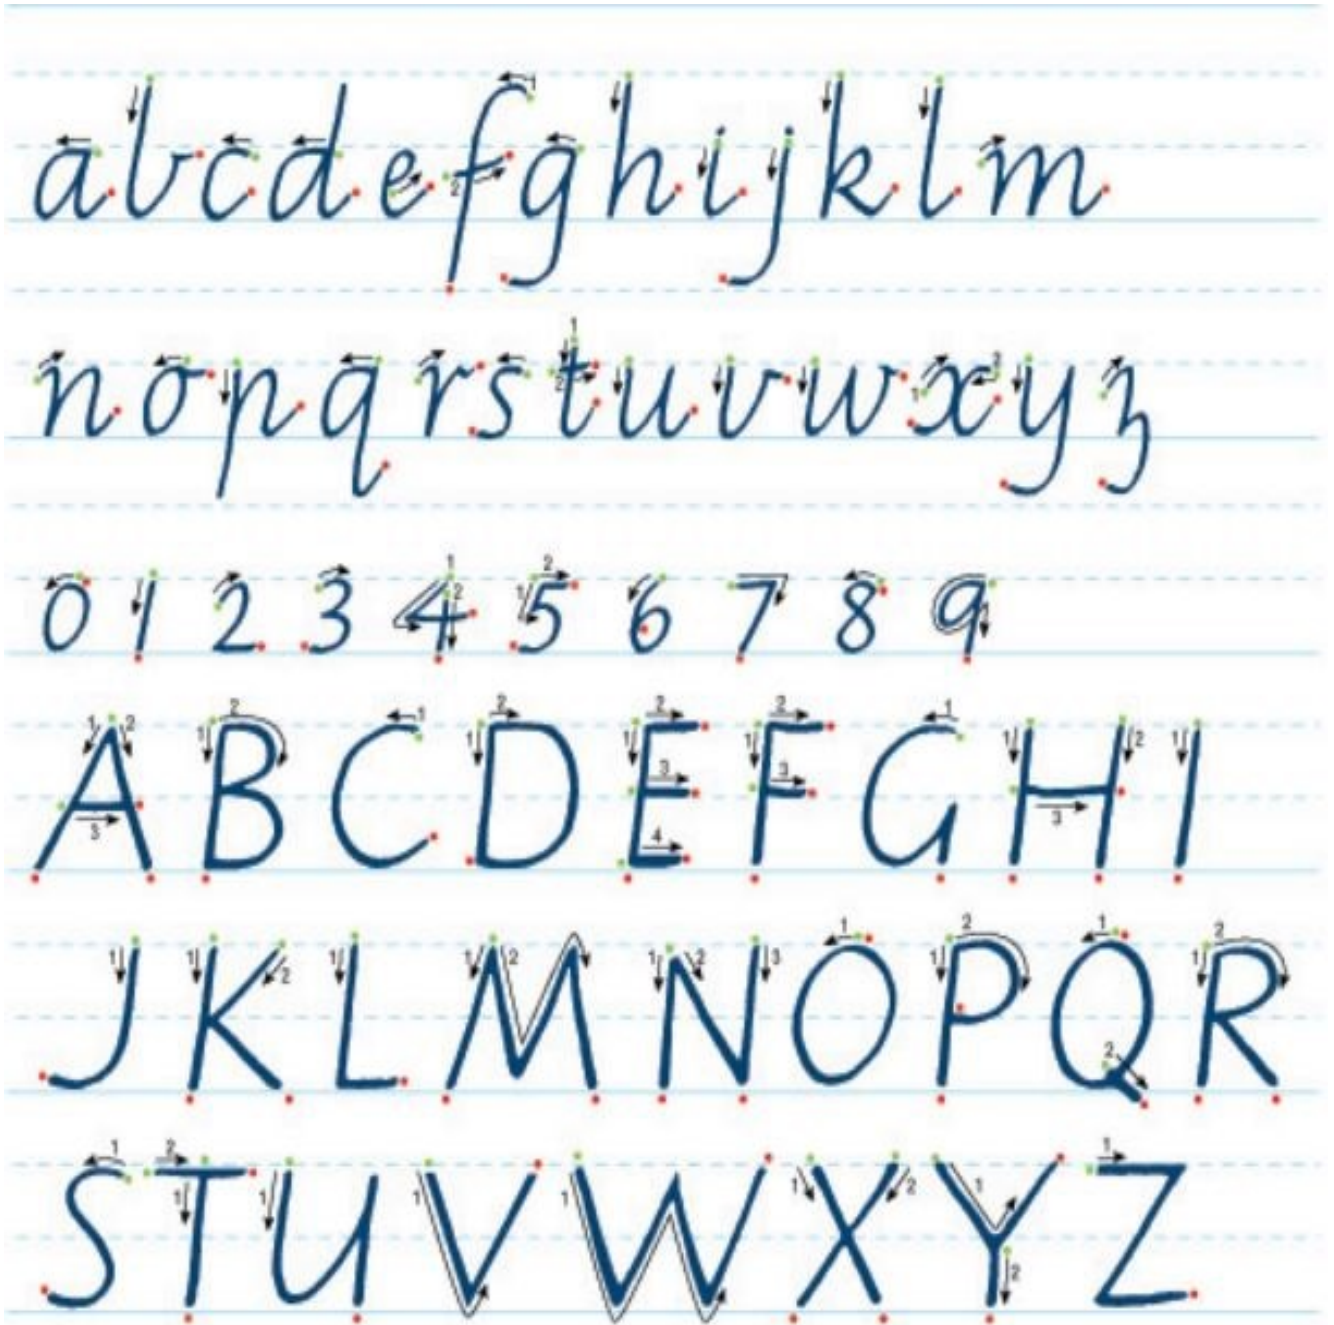 a b c d e f g h i j k l m
n o p q r s t u v w x y z
0 1 2 3 4 5 6 7 8 9
A B C D E F G H I
J K L M N O P Q R
S T U V W X Y Z